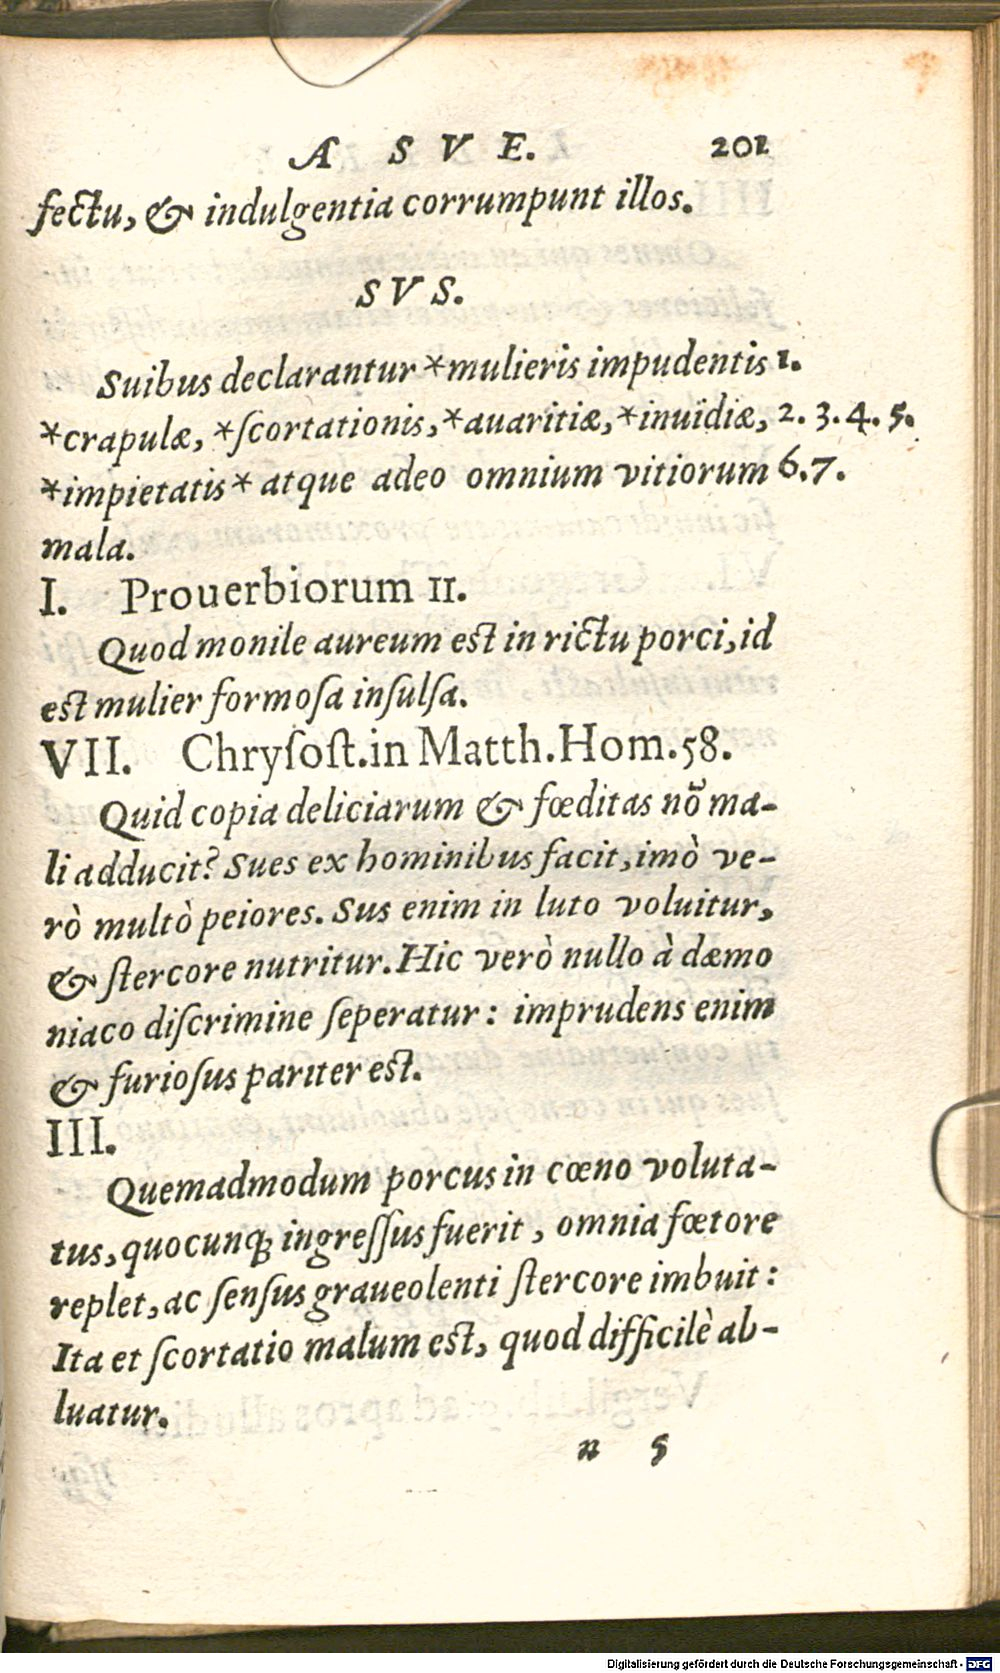 A S V E. 201
fectu, & indulgentia corrumpunt illos.
S V S.
Suibus declarantur *mulieris impudentis 1.
*crapulæ, *ſcortationis, *auaritiæ, *inuidiæ, 2. 3. 4. 5.
*impietatis * atque adeo omnium vitiorum 6. 7.
mala.
I. Prouerbiorum 11.
Quod monile aureum eſt in rictu porci, id
eſt mulier formoſa inſulſa.
VII. Chryſoſt. in Matth. Hom. 58.
Quid copia deliciarum & fœditas nõ ma-
li adducit? Sues ex hominibus facit, imò ve-
rò multò peiores. Sus enim in luto voluitur,
& ſtercore nutritur. Hic verò nullo à dæmo
niaco diſcrimine ſeperatur: imprudens enim
& furioſus pariter eſt.
III.
Quemadmodum porcus in cœno voluta-
tus, quocunqꝫ ingreſſus fuerit, omnia fœtore
replet, ac ſenſus graueolenti ſtercore imbuit:
Ita et ſcortatio malum eſt, quod difficilè ab-
luatur.
n 5
Digitalisierung gefördert durch die Deutsche Forschungsgemeinschaft - DFG